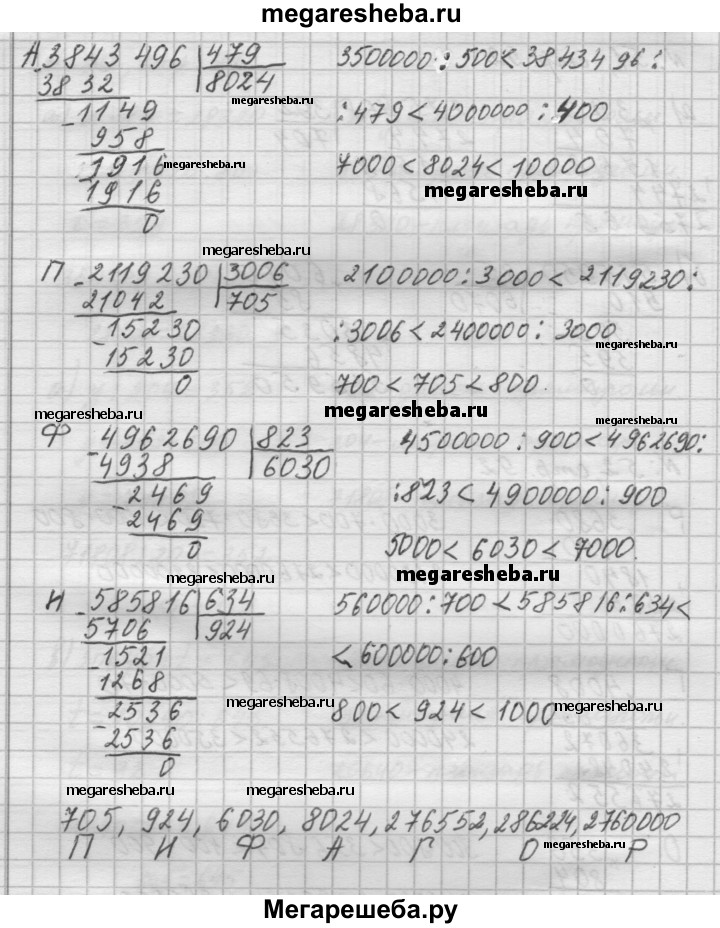 megaresheba.ru
А 3843 496 | 479 3500000 : 500 < 3843496 :
3832 8024 : 479 < 4000000 : 400
megaresheba.ru
1149
958
1916 megaresheba.ru 7000 < 8024 < 10000
1916 megaresheba.ru
0
megaresheba.ru
П 2119230 | 3006 2100000 : 3000 < 2119230 :
21042 705
15230 : 3006 < 2400000 : 3000
15230
0 700 < 705 < 800.
megaresheba.ru megaresheba.ru megaresheba.ru
Ф 4962690 | 823 4500000 : 900 < 4962690 :
4938 6030
2469 : 823 < 4900000 : 900
2469
0 5000 < 6030 < 7000.
megaresheba.ru megaresheba.ru
И 585816 | 634 560000 : 700 < 585816 : 634 <
5706 924
1521 < 600000 : 600
1268
2536 megaresheba.ru 800 < 924 < 1000 megaresheba.ru
2536
0
megaresheba.ru megaresheba.ru
705, 924, 6030, 8024, 276552, 286224, 2760000
П И Ф А Г О Р
megaresheba.ru
Мегарешеба.ру